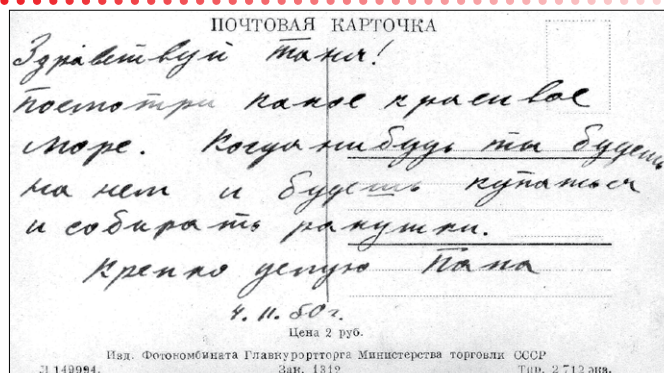 ПОЧТОВАЯ КАРТОЧКА
Здравствуй Таня!
Посмотри какое красивое
море. Когда нибудь ты будешь
на нем и будешь купаться
и собирать ракушки.
Крепко целую Папа
4. II. 50 г.
Цена 2 руб.
Изд. Фотокомбината Главкурортторга Министерства торговли СССР
Л 149994. Зак. 1312 Тир. 2712 экз.